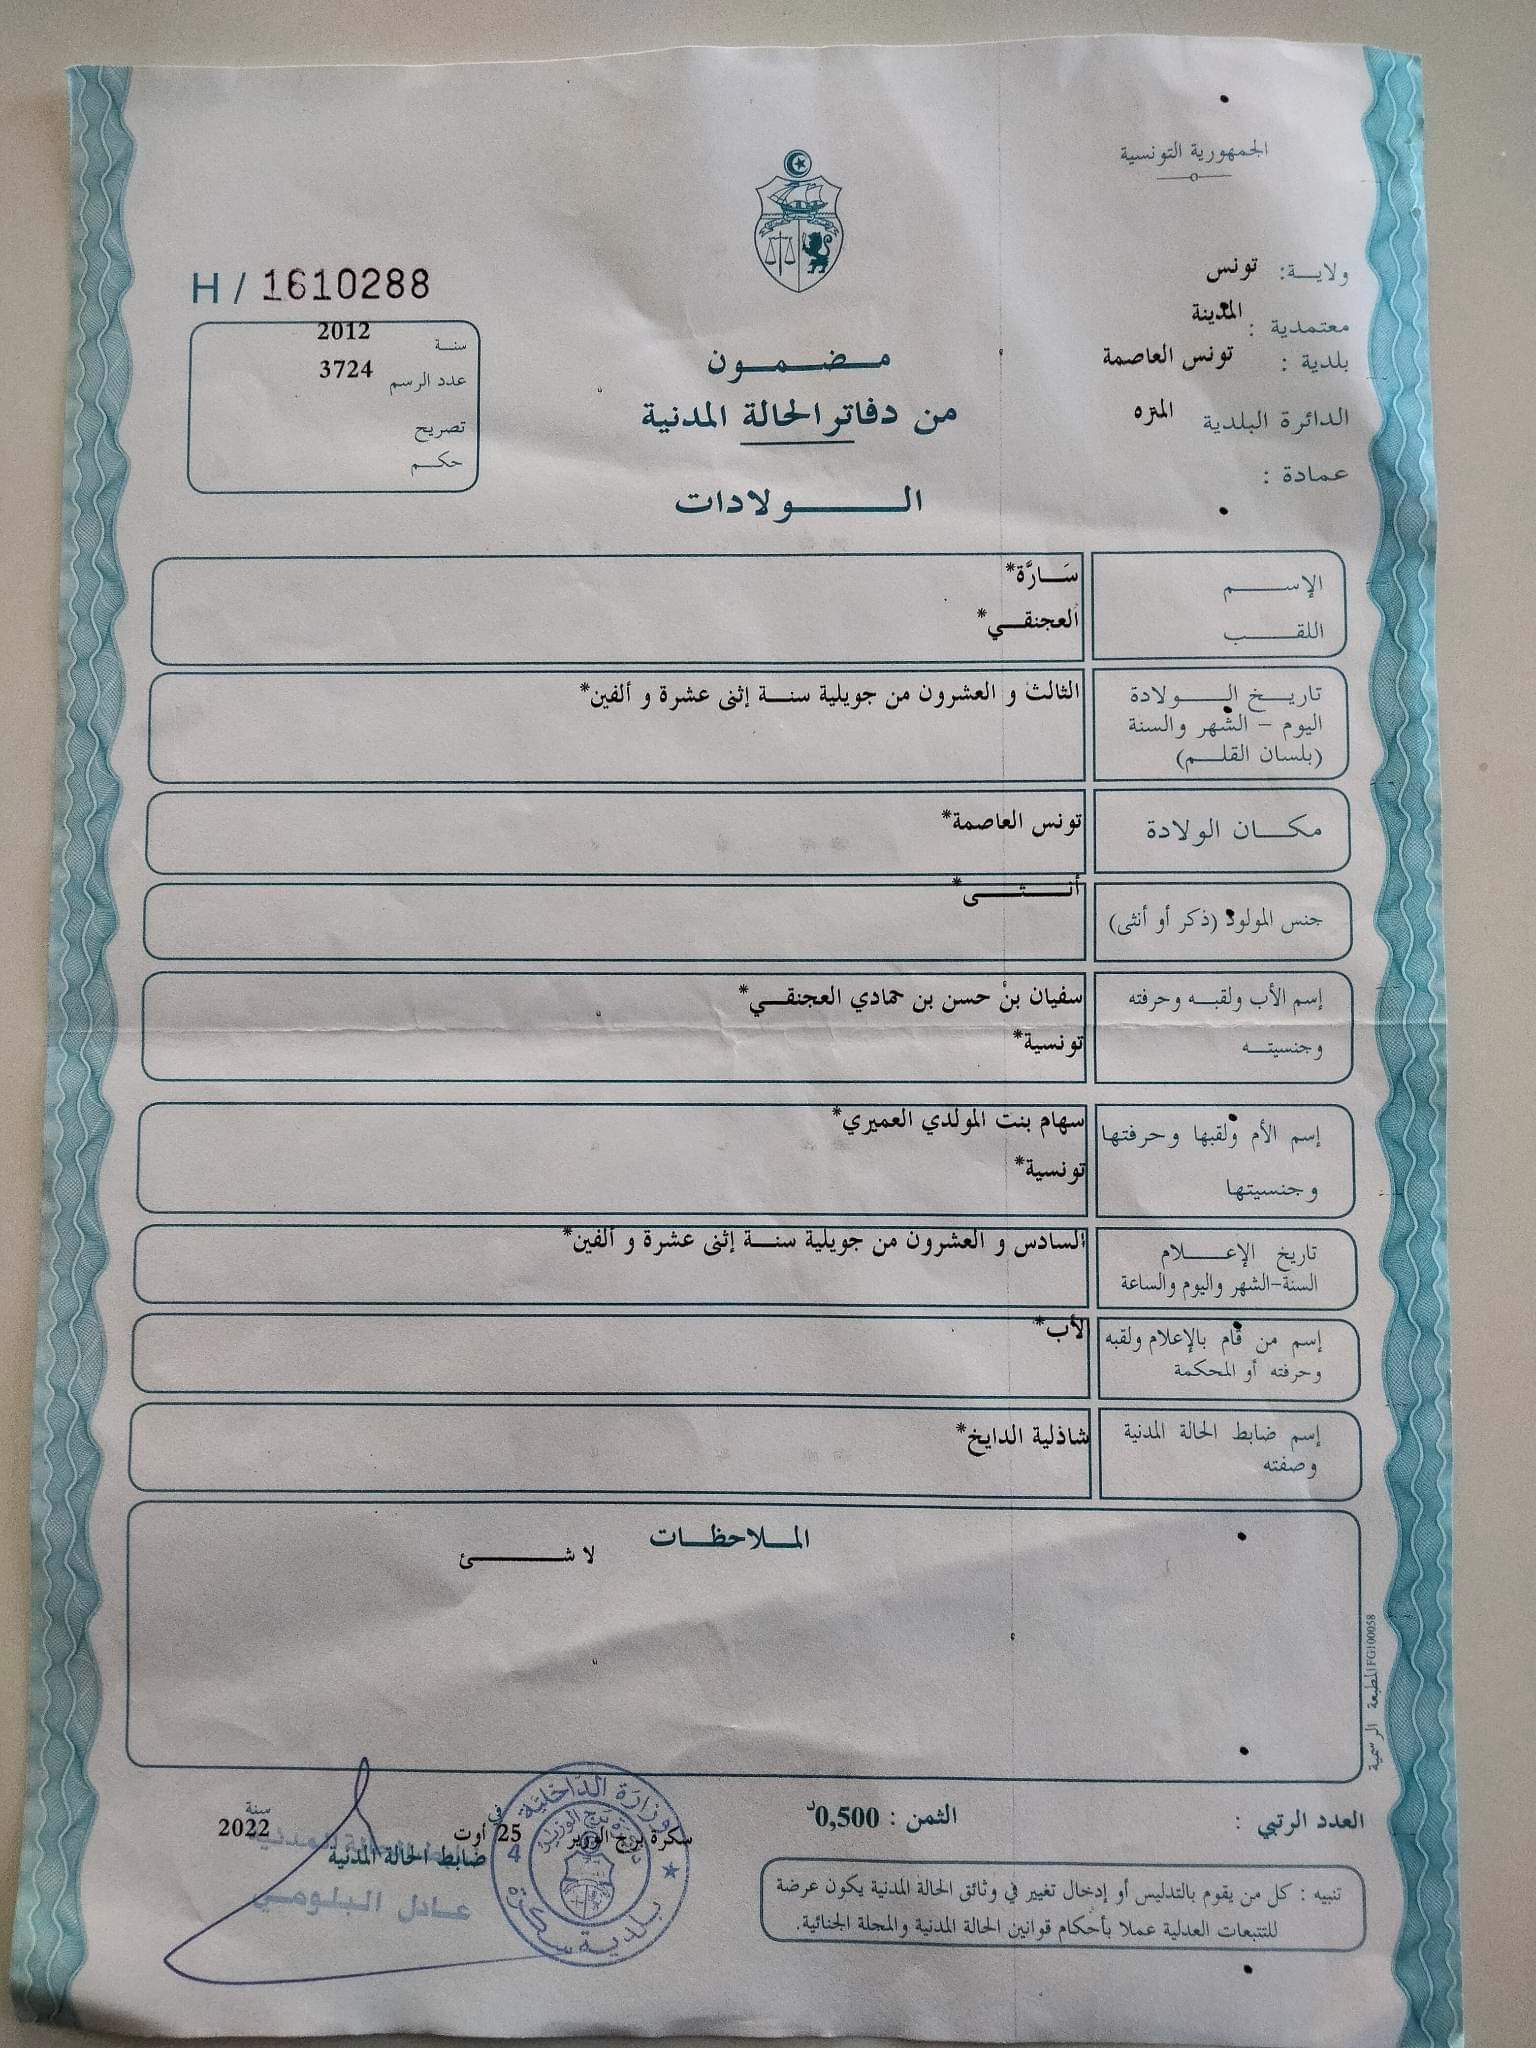 الجمهورية التونسية
ولاية: تونس
معتمدية : المدينة
بلدية : تونس العاصمة
الدائرة البلدية المنزه
عمادة :
H / 1610288
سنة 2012
عدد الرسم 3724
تصريح
حكم
مضمون
من دفاتر الحالة المدنية
الولادات
الإسم سَارَّة*
اللقب العجنقي*
تاريخ الولادة الثالث و العشرون من جويلية سنة إثنى عشرة و ألفين*
اليوم - الشهر والسنة
(بلسان القلم)
مكان الولادة تونس العاصمة*
جنس المولود (ذكر أو أنثى) أنثى*
إسم الأب ولقبه وحرفته سفيان بن حسن بن حمادي العجنقي*
وجنسيته تونسية*
إسم الأم ولقبها وحرفتها سهام بنت المولدي العميري*
وجنسيتها تونسية*
تاريخ الإعلام السادس و العشرون من جويلية سنة إثنى عشرة و ألفين*
السنة-الشهر واليوم والساعة
إسم من قام بالإعلام ولقبه الأب*
وحرفته أو المحكمة
إسم ضابط الحالة المدنية شاذلية الدايخ*
وصفته
الملاحظات
لا شئ
المطبعة الرسمية 1FG100058
العدد الرتبي :
الثمن : 0,500د
سكرة برج الوزير في 25 أوت سنة 2022
ضابط الحالة المدنية
عادل البلومي
وزارة الداخلية
بلدية سكرة
دائرة برج الوزير
4
تنبيه : كل من يقوم بالتدليس أو إدخال تغيير في وثائق الحالة المدنية يكون عرضة
للتتبعات العدلية عملا بأحكام قوانين الحالة المدنية والمجلة الجنائية.